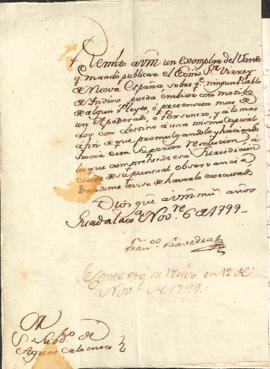 Remito a vm un exemplar del Vando
q. mandó publicar el Exmo Sr. Virrey
de Nueva España sobre q. ningun Pueblo
de Indios pueda embiar con motivo
de algun Pleyto, ó pretencion mas de
un Apoderado, ó Personero, y a lo mas
dos con destino a una misma Capital
a fin de que promulgandolo y haciendo
saver esta Superior resolucion,
en lo que comprehende esa Jurisdiccion
cuide de su puntual observancia
dandome aviso de haverlo executado.
Dios gue a vm. ms. años
Guadalaxa. Novre. 6 de 1799.
Saavedra
en 12 de
Nove. de 1799.
Sr. Subdo. de
Aguas calientes